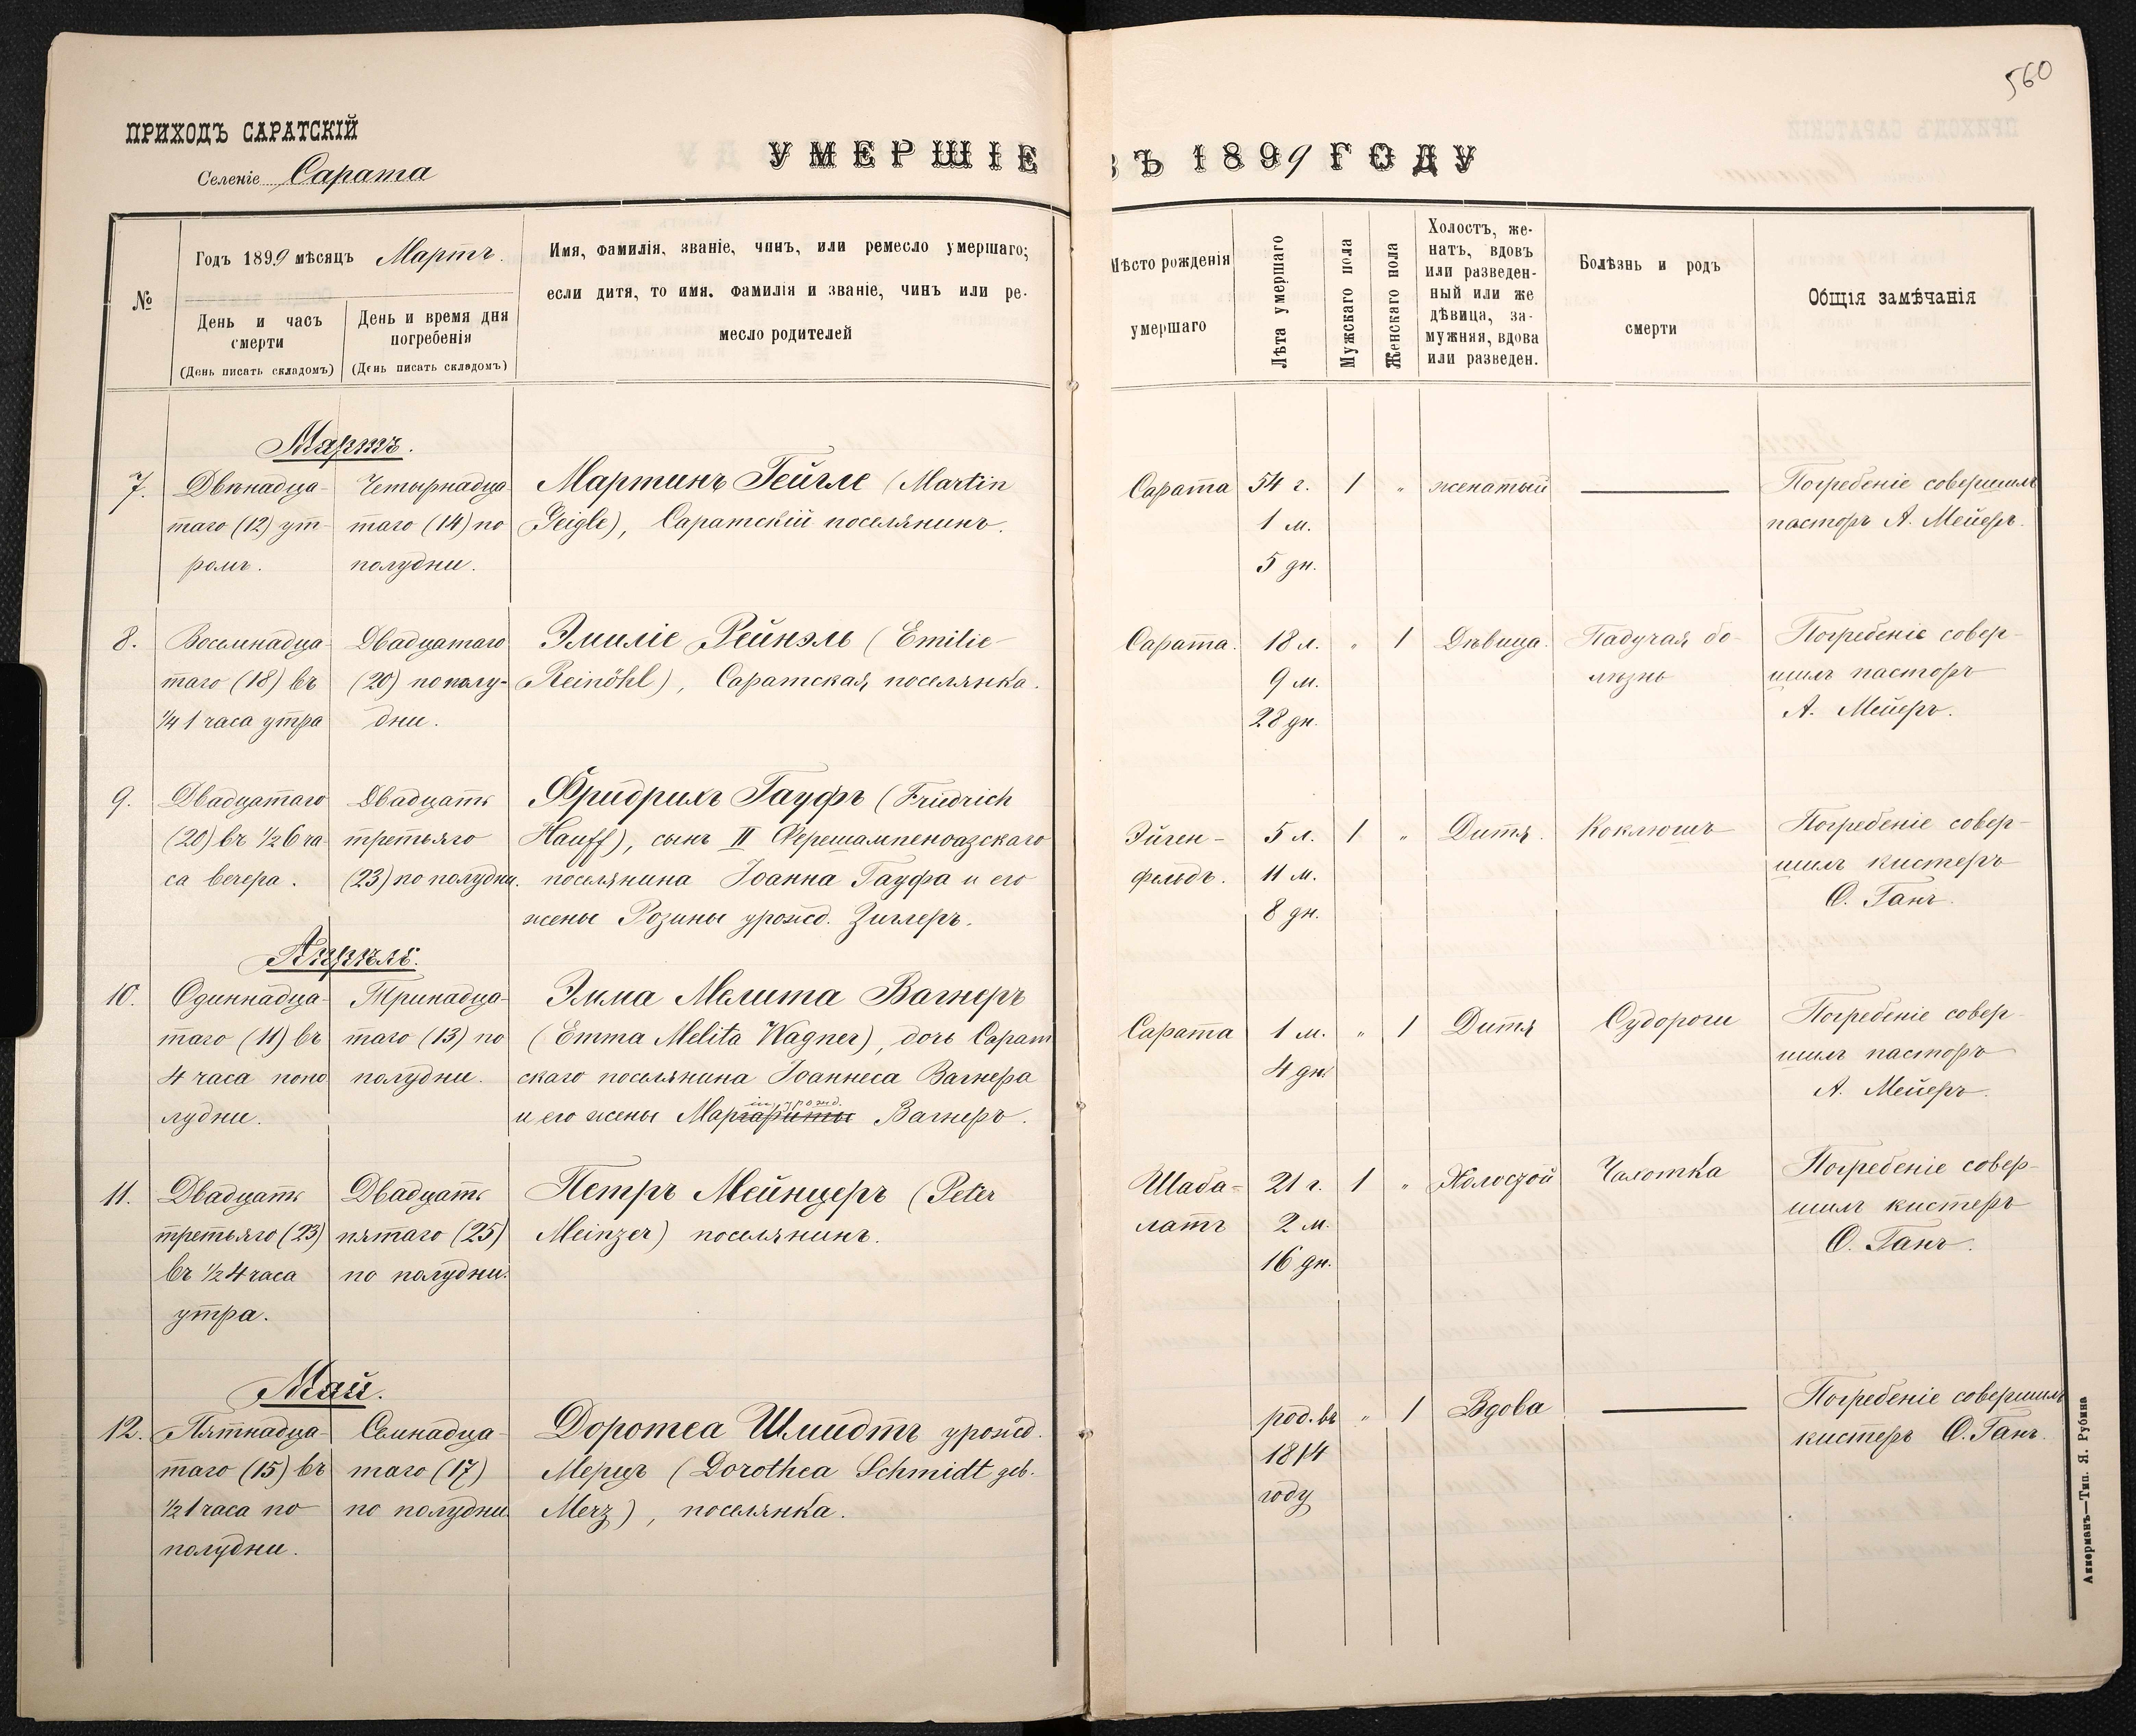 560
ПРИХОДЪ САРАТСКІЙ
Селеніе Сарата
УМЕРШІЕ ВЪ 1899 ГОДУ
№
Годъ 1899 мѣсяцъ Мартъ.
День и часъ
смерти
(День писать складомъ)
День и время дня
погребенія
(День писать складомъ)
Имя, фамилія, званіе, чинъ, или ремесло умершаго;
если дитя, то имя. фамилія и званіе, чинъ или ре-
месло родителей
Мѣсто рожденія
умершаго
Лѣта умершаго
Мужскаго пола
Женскаго пола
Холостъ, же-
натъ, вдовъ
или разведен-
ный или же
дѣвица, за-
мужняя, вдова
или разведен.
Болѣзнь и родъ
смерти
Общія замѣчанія
Мартъ.
7.
Двѣнадца-
таго (12) ут-
ромъ.
Четырнадца
таго (14) по
полудни.
Мартинъ Гейгле (Martin
Geigle), Саратскій поселянинъ.
Сарата
54 г.
1 м.
5 дн.
1
"
женатый
Погребеніе совершилъ
пасторъ А. Мейеръ.
8.
Восемнадца-
таго (18) въ
1/4 1 часа утра
Двадцатаго
(20) по полу-
дни.
Эмиліе Рейнэль (Emilie
Reinöhl), Саратская поселянка.
Сарата.
18 л.
9 м.
28 дн.
"
1
Дѣвица.
Падучая бо-
лѣзнь
Погребеніе совер-
шилъ пасторъ
А. Мейеръ.
9.
Двадцатаго
(20) въ 1/2 6 ча-
са вечера.
Двадцать
третьяго
(23) по полудни.
Фридрихъ Гауфъ (Friedrich
Hauff), сынъ II Ферешампеноазскаго
поселянина Іоанна Гауфа и его
жены Розины урожд. Зиглеръ.
Эйген-
фельдъ.
5 л.
11 м.
8 дн.
1
"
Дитя.
Коклюшъ
Погребеніе совер-
шилъ кистеръ
О. Ганъ.
Апрѣль.
10.
Одиннадца-
таго (11) въ
4 часа попо
лудни.
Тринадца-
таго (13) по
полудни.
Эмма Мелита Вагнеръ
(Emma Melita Wagner), дочь Сарат
скаго поселянина Іоаннеса Вагнера
и его жены Маргариты урожд. Вагнеръ.
Сарата
1 м.
4 дн.
"
1
Дитя
Судороги
Погребеніе совер-
шилъ пасторъ
А. Мейеръ.
11.
Двадцать
третьяго (23)
въ 1/2 4 часа
утра.
Двадцать
пятаго (25)
по полудни.
Петръ Мейнцеръ (Peter
Meinzer) поселянинъ.
Шаба-
латъ
21 г.
2 м.
16 дн.
1
"
Холостой
Чахотка
Погребеніе совер-
шилъ кистеръ
О. Ганъ.
Май.
12.
Пятнадца-
таго (15) въ
1/2 1 часа по
полудни.
Семнадца-
таго (17)
по полудни.
Доротеа Шмидтъ урожд.
Мерцъ (Dorothea Schmidt geb.
Merz), поселянка.
род. въ
1814
году
"
1
Вдова
Погребеніе совершилъ
кистеръ О. Ганъ.
Аккерманъ—Тип. Я. Рубина